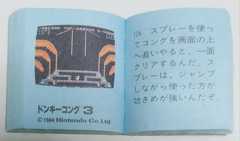 ドンキーコング 3
© 1984 Nintendo Co.Ltd
スプレーを使っ
てコングを画面の上
へ追いやると、一面
クリアするんだ。ス
プレーは、ジャンプ
しながら使った方が
効きめが強いんだぞ。